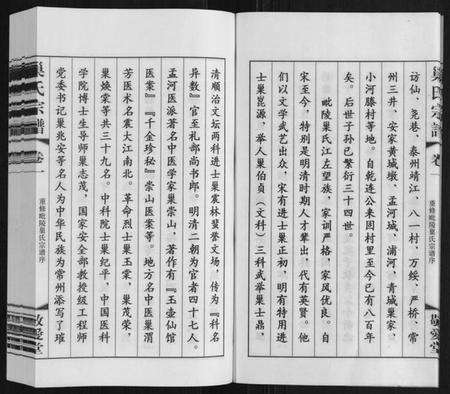 巢氏宗谱 卷
重修毗陵巢氏宗谱序
敬爱堂
访仙、尧巷、泰州靖江、八一村、万绥、严桥、常
州三井、安家黄城墩、孟河城、浦河、青城巢家、
小河滕村等地。自乾连公来因村里至今已有八百年
矣。后世子孙已繁衍三十四世。
毗陵巢氏江左望族，家训严格，家风优良。自
宋至今，特别是明清时期人才辈出，代有英贤。他
们以文学武艺出众，宋有进士巢正初，明有特用进
士巢昆源，举人巢伯贞（文科）三科武举巢士鼎，
清顺治文坛两科进士巢震林赞誉文场，传为『科名
异数』官至礼部尚书郎。明清二朝为官者四十七人。
孟河医派著名中医学家巢崇山，著作有『玉壶仙馆
医案』『千金珍秘』崇山医案等。地方名中医巢渭
芳医术名震大江南北。革命烈士巢玉堂，巢茂荣，
巢焕棠等共三十九名。中科院士巢纪平，中国医科
学院博士生导师巢志茂，国家安全部教授级工程师
党委书记巢兆安等名人为中华民族为常州添写了璀
巢氏宗谱 卷
重修毗陵巢氏宗谱序
敬爱堂